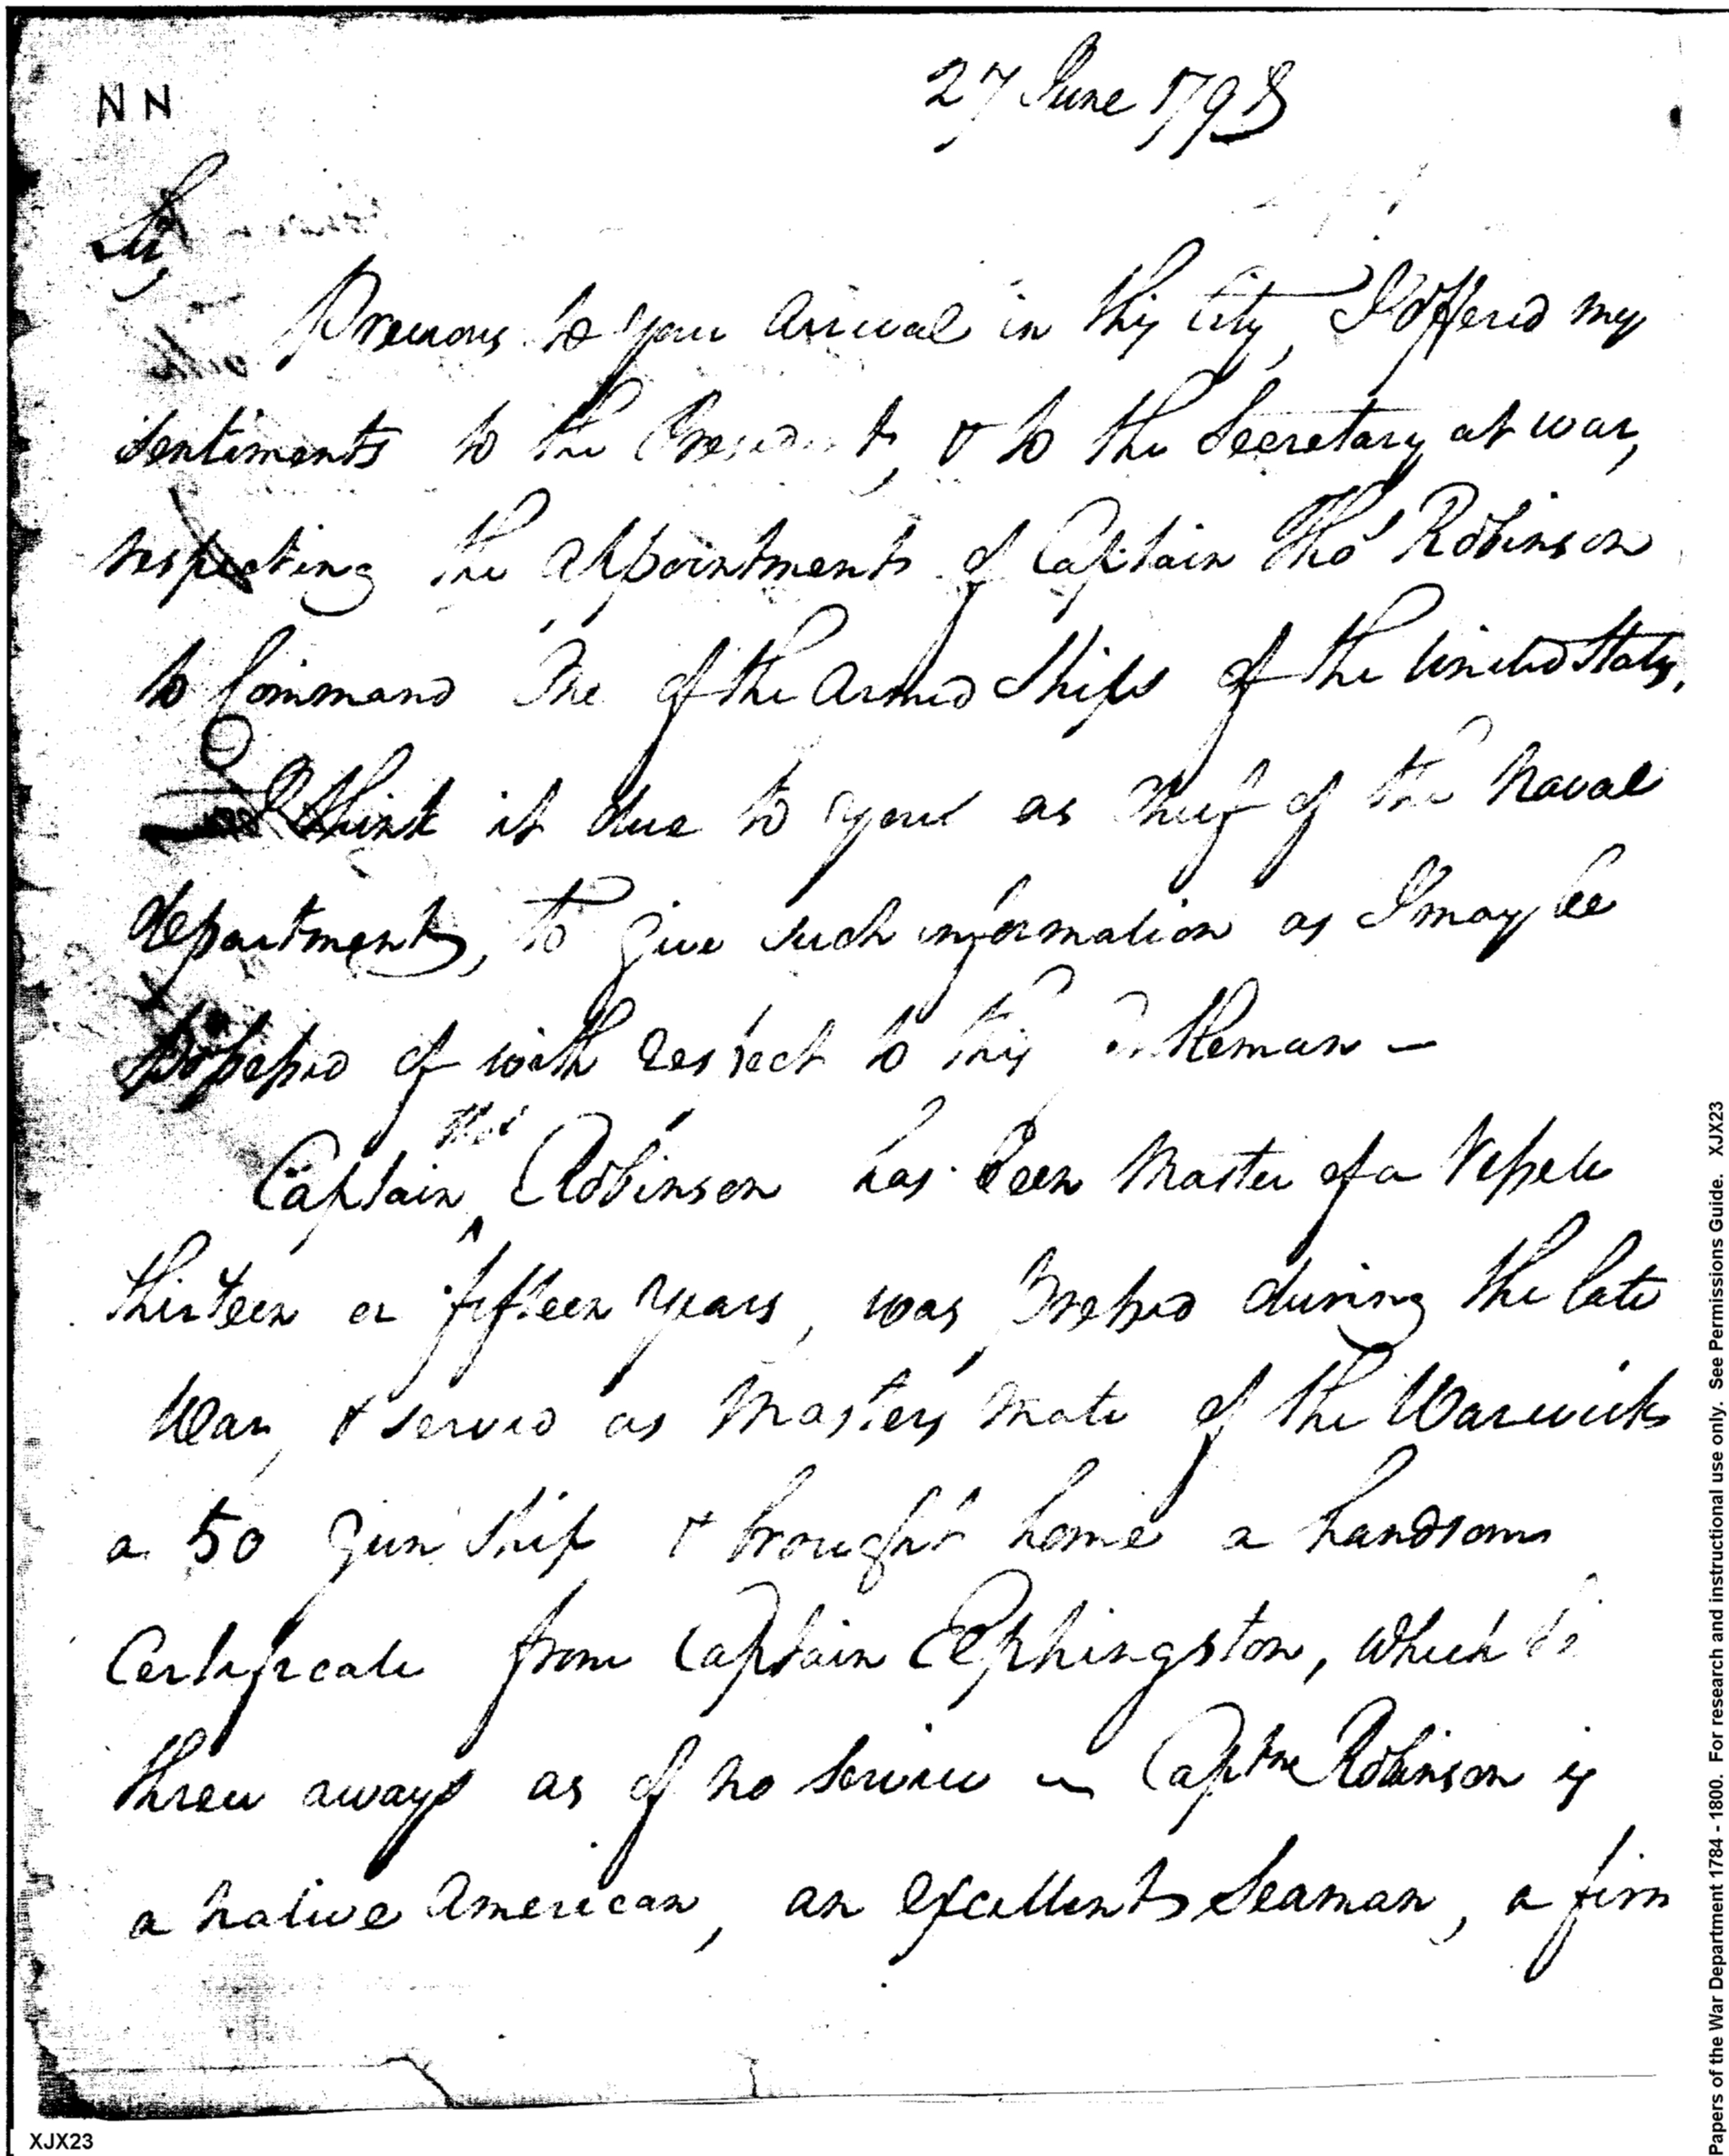 NN
27 June 1798
Sir,
Previous to your arrival in this City, I offered my
sentiments to the President, & to the Secretary at war,
respecting the appointment of Captain Tho.s Robinson
to Command One of the Armed Ships of the United States,
I think it due to you as Chief of the Naval
department, to give such information as I may be
possessed of with respect to this Gentleman —
Captain Tho.s Robinson has been Master of a Vessell
thirteen or fifteen years, was pressed during the late
War, & served as Masters Mate of the Warwick
a 50 Gun Ship & brought home a handsome
Certificate from Captain Elphingston, which he
threw away as of no Service — Captne Robinson is
a native American, an excellent Seaman, a firm
XJX23
Papers of the War Department 1784 - 1800. For research and instructional use only. See Permissions Guide. XJX23